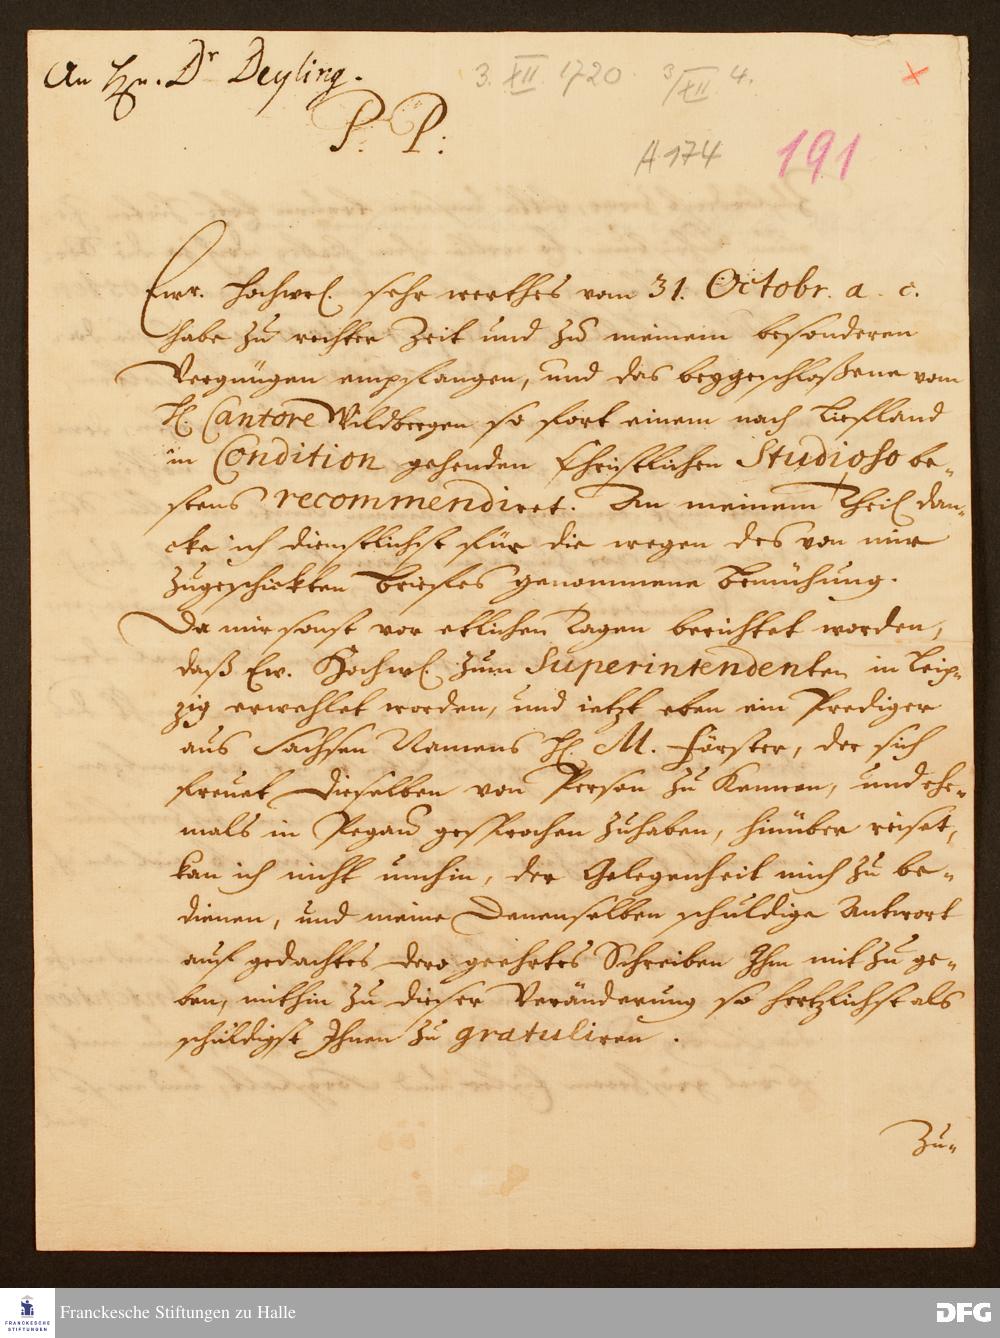 An Hn. Dr Deyling.
3. XII. 1720. 3/XII 4.
P. P.
A 174
191
Ewr. Hochwl. sehr werthes vom 31. Octobr. a. c.
habe zu rechter Zeit und zu meinem besonderen
Vergnügen empfangen, und das beygeschloßene vom
H. Cantore Wildbergen so fort einem nach Liefland
in Condition gehenden Christlichen Studioso be-
stens recommendiret. An meinem Theil dan-
cke ich dienstlichst für die wegen des von mir
zugeschickten Briefes genommene Bemühung.
Da mir sonst vor etlichen Tagen berichtet worden,
daß Ew. Hochwl. zum Superintendenten in Leip-
zig erwehlet worden, und ietzt eben ein Prediger
aus Sachsen Namens H. M. Förster, der sich
freuet Dieselben von Person zu kennen, und ehe-
mals in Pegau gesprochen zuhaben, hinüber reiset,
kan ich nicht umhin, der Gelegenheit mich zu be-
dienen, und meine Denenselben schuldige Antwort
auf gedachtes dero geehrtes Schreiben Ihm mit zu ge-
ben, mithin zu dieser Veränderung so hertzlichst als
schuldigst Ihnen zu gratuliren.
Zu-
FRANCKESCHE
STIFTUNGEN
Franckesche Stiftungen zu Halle
DFG